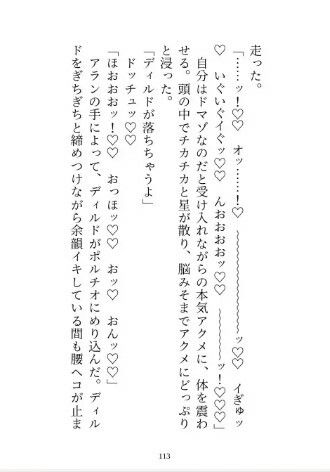 走った。
「……ッ！♡♡　オッ……！♡　～～～～～～～～ッ♡♡　イぎゅッ
♡　いぐいぐイグッ♡♡　んおおおおッ♡♡　～～～～ッ！♡♡♡」
自分はドマゾなのだと受け入れながらの本気アクメに、体を震わ
せる。頭の中でチカチカと星が散り、脳みそまでアクメにどっぷり
と浸った。
「ディルドが落ちちゃうよ」
ドッチュッ♡♡
「ほおおおッ！♡♡　おっほッ♡　おッ♡　おんッ♡♡♡」
アランの手によって、ディルドがポルチオにめり込んだ。ディル
ドをぎちぎちと締めつけながら余韻イキしている間も腰ヘコが止ま
113